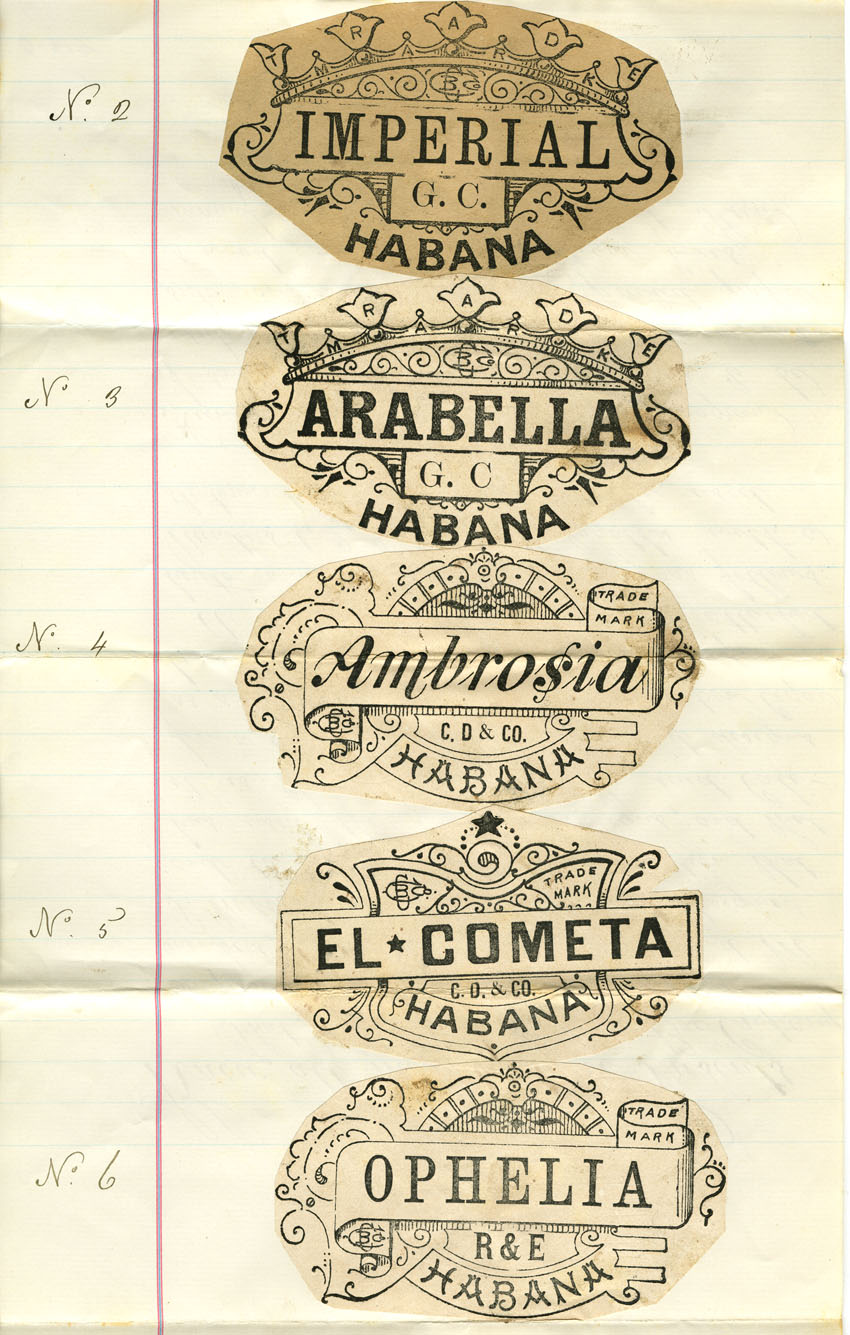 No. 2
TRADE
MARK
BC
IMPERIAL
G. C.
HABANA
No. 3
TRADE
MARK
BC
ARABELLA
G. C
HABANA
No. 4
TRADE
MARK
Ambrosia
C. D & CO.
HABANA
No. 5
TRADE
MARK
EL ★ COMETA
C. D. & CO.
HABANA
No. 6
TRADE
MARK
OPHELIA
R & E
HABANA